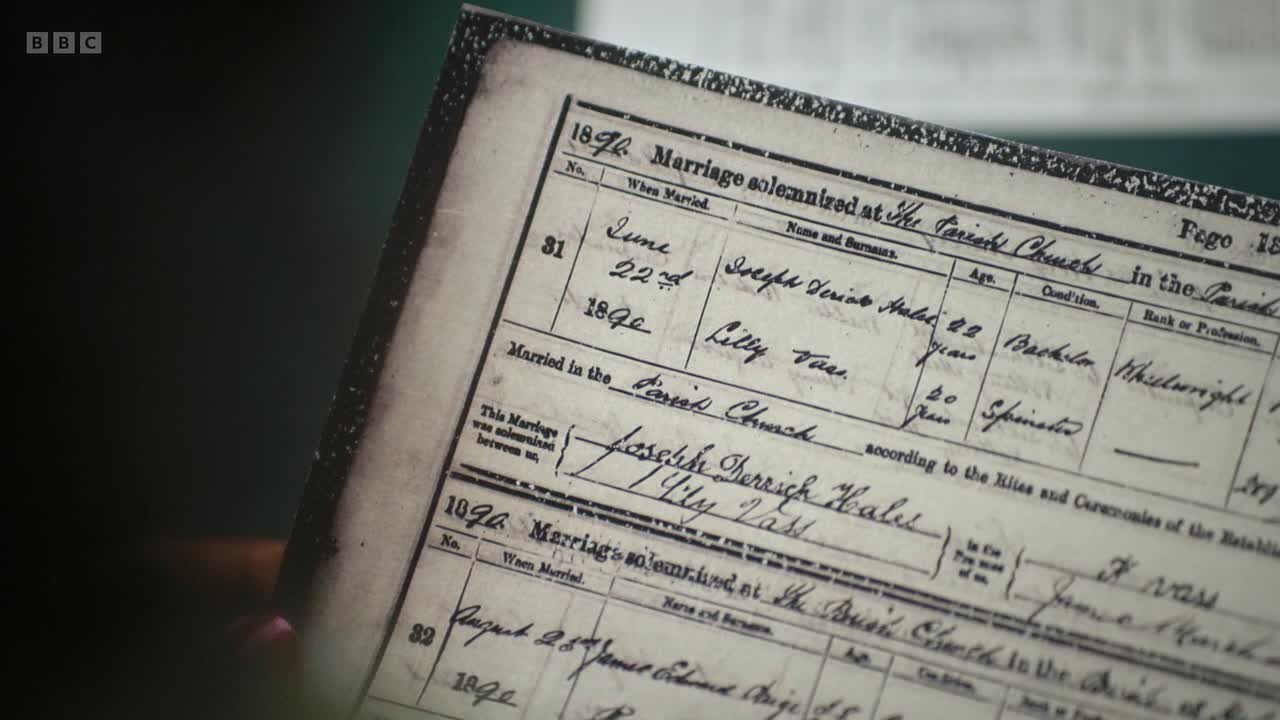 BBC
1890. Marriage solemnized at The Parish Church in the Parish
Page 18
No. When Married. Name and Surname. Age. Condition. Rank or Profession.
31 June 22nd 1890
Joseph Derrick Hales 22 years Bachelor Wheelwright
Lilly Vass. 20 years Spinster
Married in the Parish Church according to the Rites and Ceremonies of the Establi
This Marriage was solemnized between us,
Joseph Derrick Hales
Lily Vass
in the Presence of us,
Vass
1890. Marriage solemnized at The Parish Church in the Parish
No. When Married. Name and Surname. Age. Condition.
32 August 23rd 1890
James Edward Paige